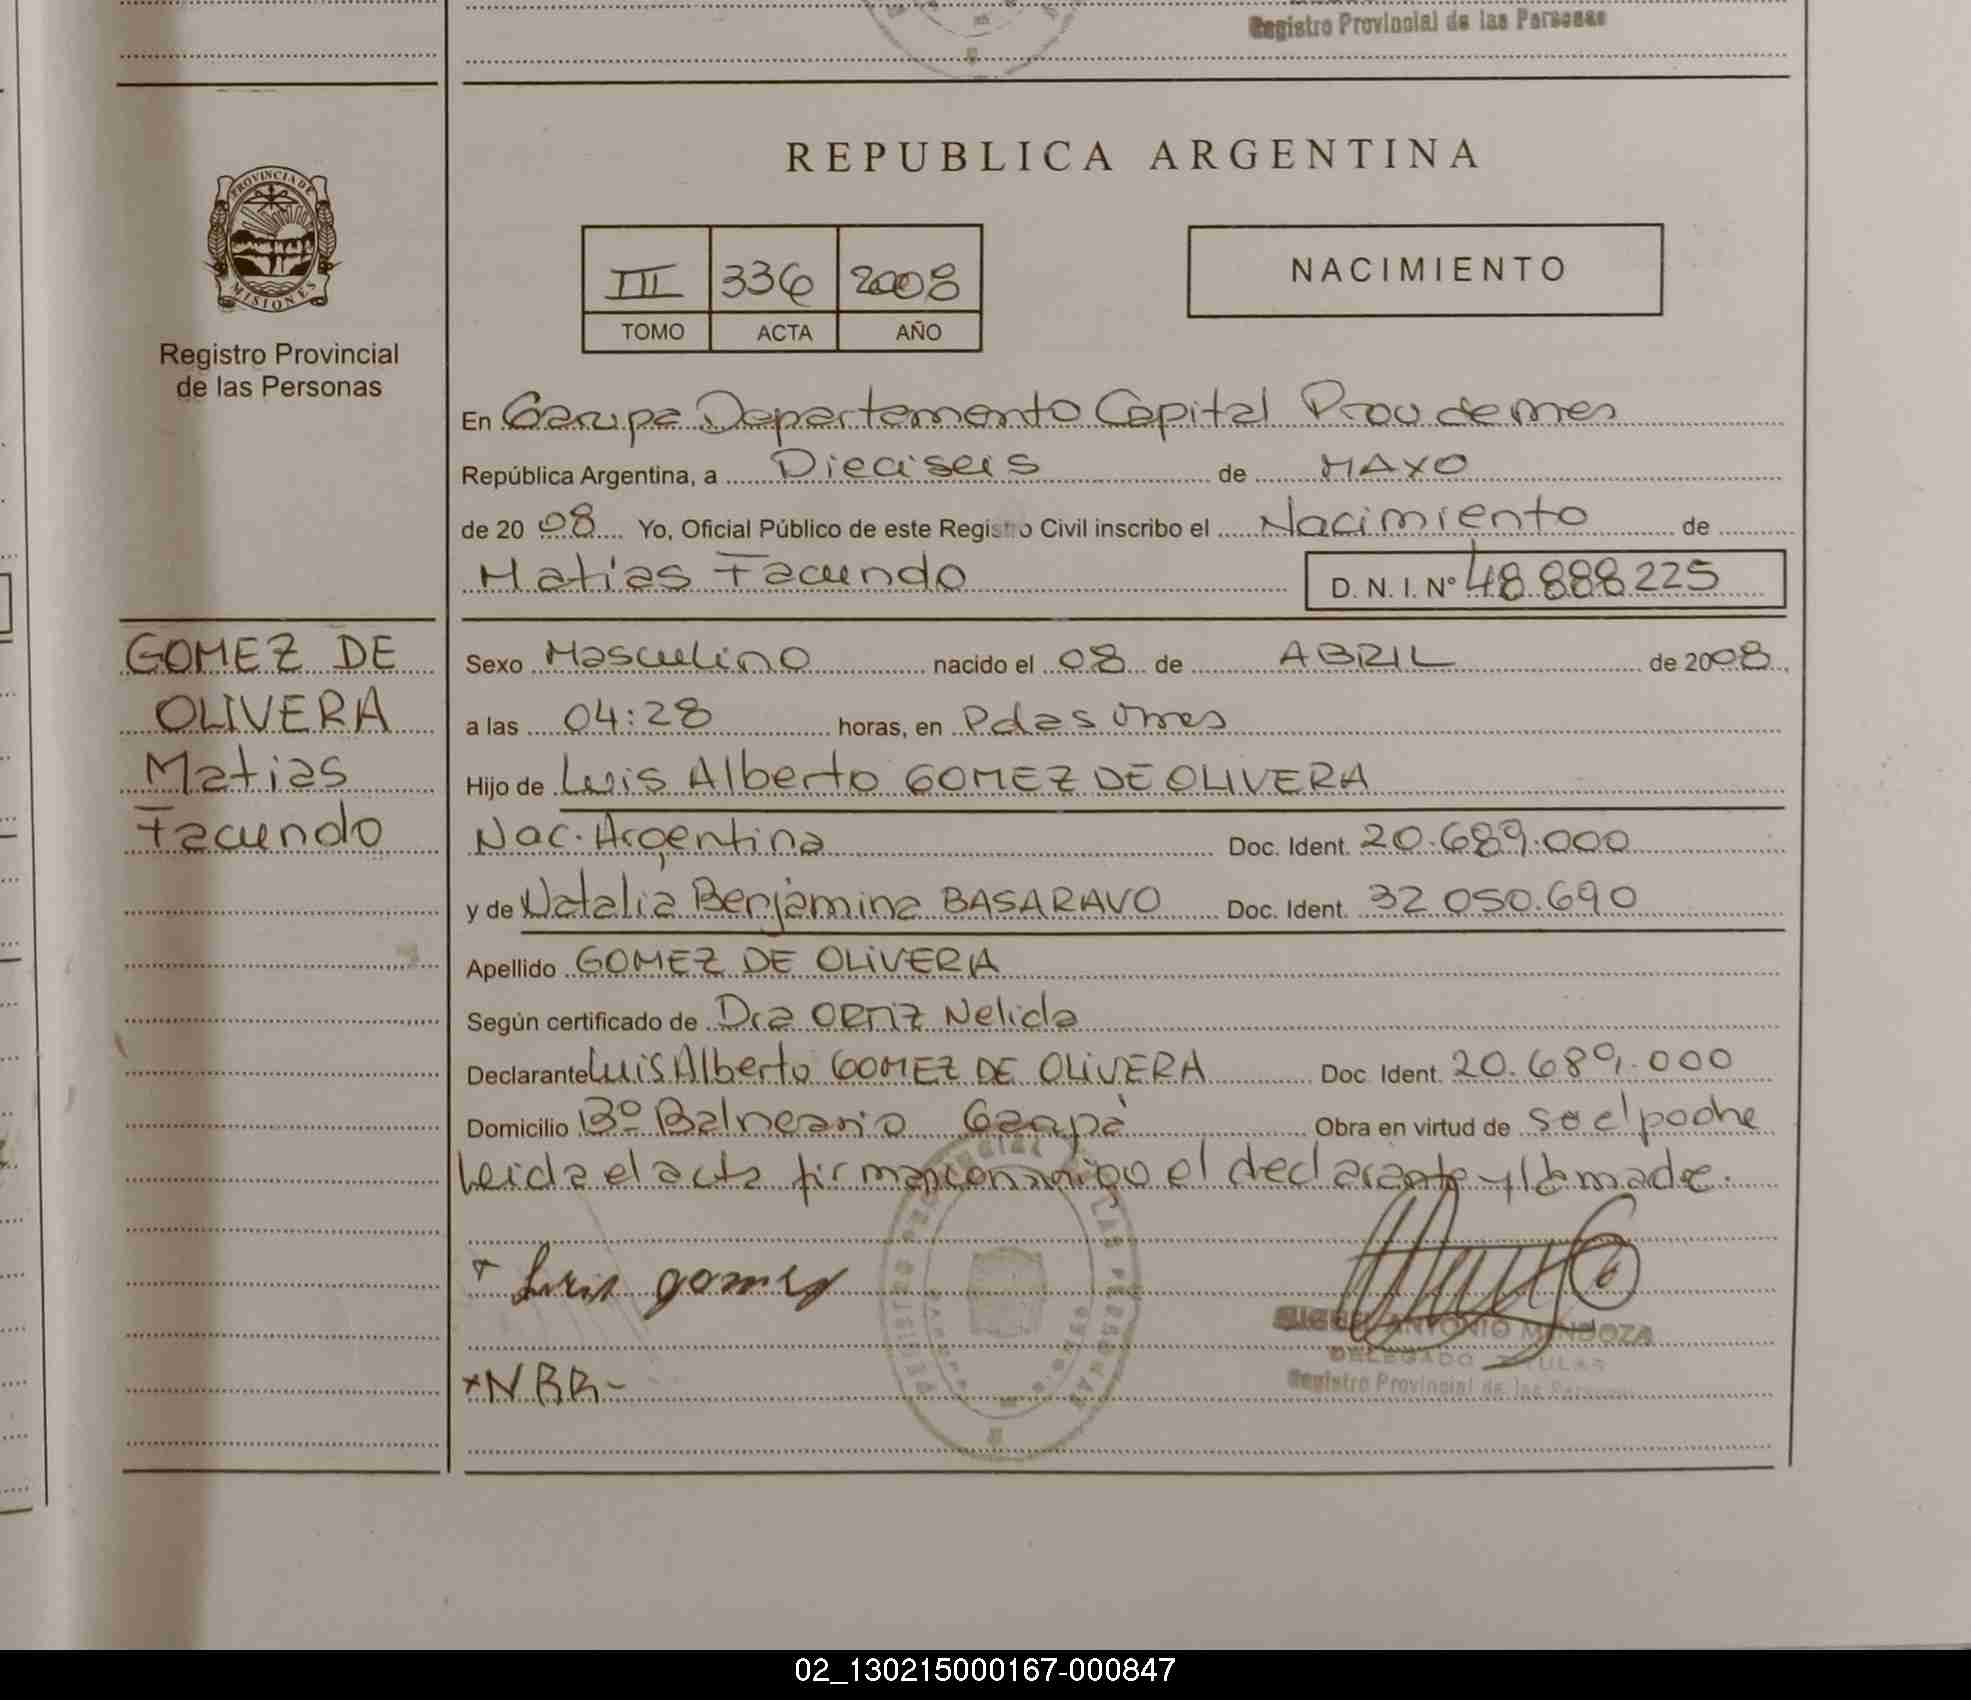 Registro Provincial de las Personas
REPUBLICA ARGENTINA
PROVINCIA DE
MISIONES
Registro Provincial
de las Personas
III 336 2008
TOMO ACTA AÑO
NACIMIENTO
En Garupa Departamento Capital Prov de mnes
República Argentina, a Dieciseis de MAYO
de 2008 Yo, Oficial Público de este Registro Civil inscribo el Nacimiento de
Matias Facundo D. N. I. Nº 48888225
GOMEZ DE
OLIVERA
Matias
Facundo
Sexo Masculino nacido el 08 de ABRIL de 2008
a las 04:28 horas, en Pdas Mnes
Hijo de Luis Alberto GOMEZ DE OLIVERA
Nac. Argentina Doc. Ident. 20.689.000
y de Natalia Benjamina BASARAVO Doc. Ident. 32 050.690
Apellido GOMEZ DE OLIVERA
Según certificado de Dra ORTIZ Nelida
Declarante Luis Alberto GOMEZ DE OLIVERA Doc. Ident. 20.689.000
Domicilio Bº Balneario Garupá Obra en virtud de so el padre
Leida el acta firman conmigo el declarante y la madre.
+ Luis gomez
ANTONIO MENDOZA
DELEGADO TITULAR
Registro Provincial de las Personas
+NBB-
02_130215000167-000847